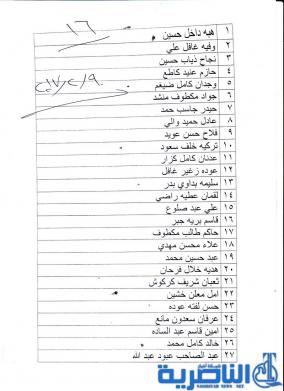 ١٦
٢٠١٧/٢/٩
١ هبه داخل حسين
٢ وفيه غافل علي
٣ نجاح ذياب حسين
٤ حازم عنيد كاطع
٥ وجدان كامل ضيغم
٦ جواد مكطوف منشد
٧ حيدر جاسب حمد
٨ عادل حميد والي
٩ فلاح حسن عويد
١٠ تركيه خلف سعود
١١ عدنان كامل كزار
١٢ عوده زغير غافل
١٣ سليمه بداوي بدر
١٤ لقمان عطيه راضي
١٥ علي عبد صلوع
١٦ قاسم بريه جبر
١٧ حاكم طالب مكطوف
١٨ علاء محسن مهدي
١٩ عبد حسين محمد
٢٠ هديه خلال فرحان
٢١ ثعبان شريف كركوش
٢٢ امل معلن خشين
٢٣ حسن لفته عوده
٢٤ عرفان سعدون مانع
٢٥ امين قاسم عبد الساده
٢٦ خالد كامل محمد
٢٧ عبد الصاحب عبود عبد الله
شبكة أخبار
الناصرية
NASIRIYAH NEWS NET